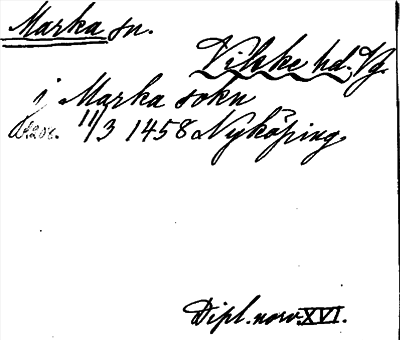 Marka sn.
Vilske hd. Vg.
j Marka sokn
11/3 1458 Nyköping
Dipl. norv. XVI.